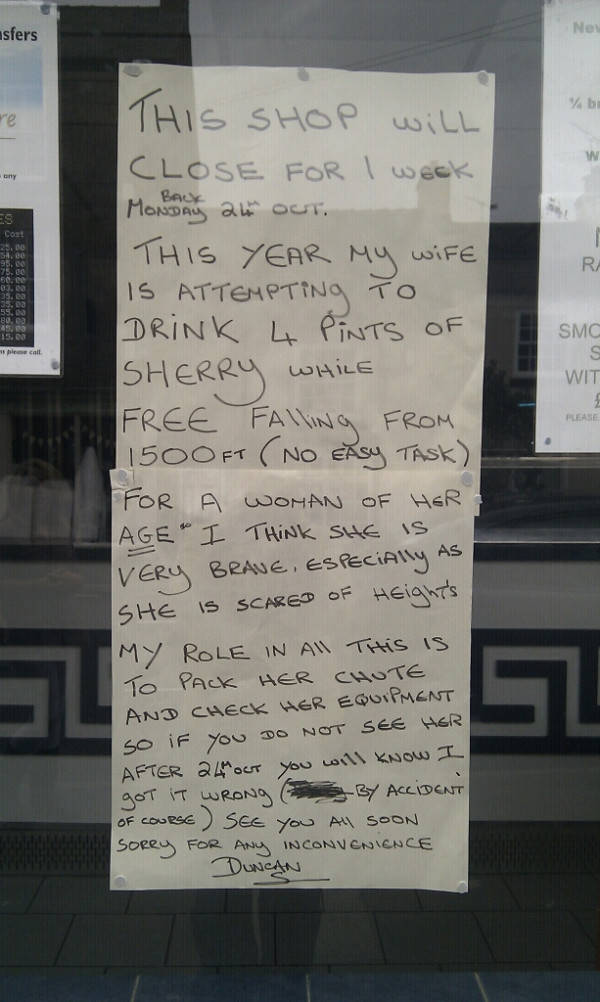 THIS SHOP WILL
CLOSE FOR 1 WEEK
BACK
MONDAY 24TH OCT.
THIS YEAR MY WIFE
IS ATTEMPTING TO
DRINK 4 PINTS OF
SHERRY WHILE
FREE FALLING FROM
1500FT (NO EASY TASK)
FOR A WOMAN OF HER
AGE" I THINK SHE IS
VERY BRAVE, ESPECIALLY AS
SHE IS SCARED OF HEIGHTS
MY ROLE IN ALL THIS IS
TO PACK HER CHUTE
AND CHECK HER EQUIPMENT
SO IF YOU DO NOT SEE HER
AFTER 24TH OCT YOU WILL KNOW I
GOT IT WRONG ( BY ACCIDENT
OF COURSE) SEE YOU ALL SOON
SORRY FOR ANY INCONVENIENCE
DUNCAN
sfers
re
any
ES
Cost
25.00
54.00
95.00
75.00
15.00
ns please call.
New
¼ b
W
R
SMO
S
WIT
£
PLEASE